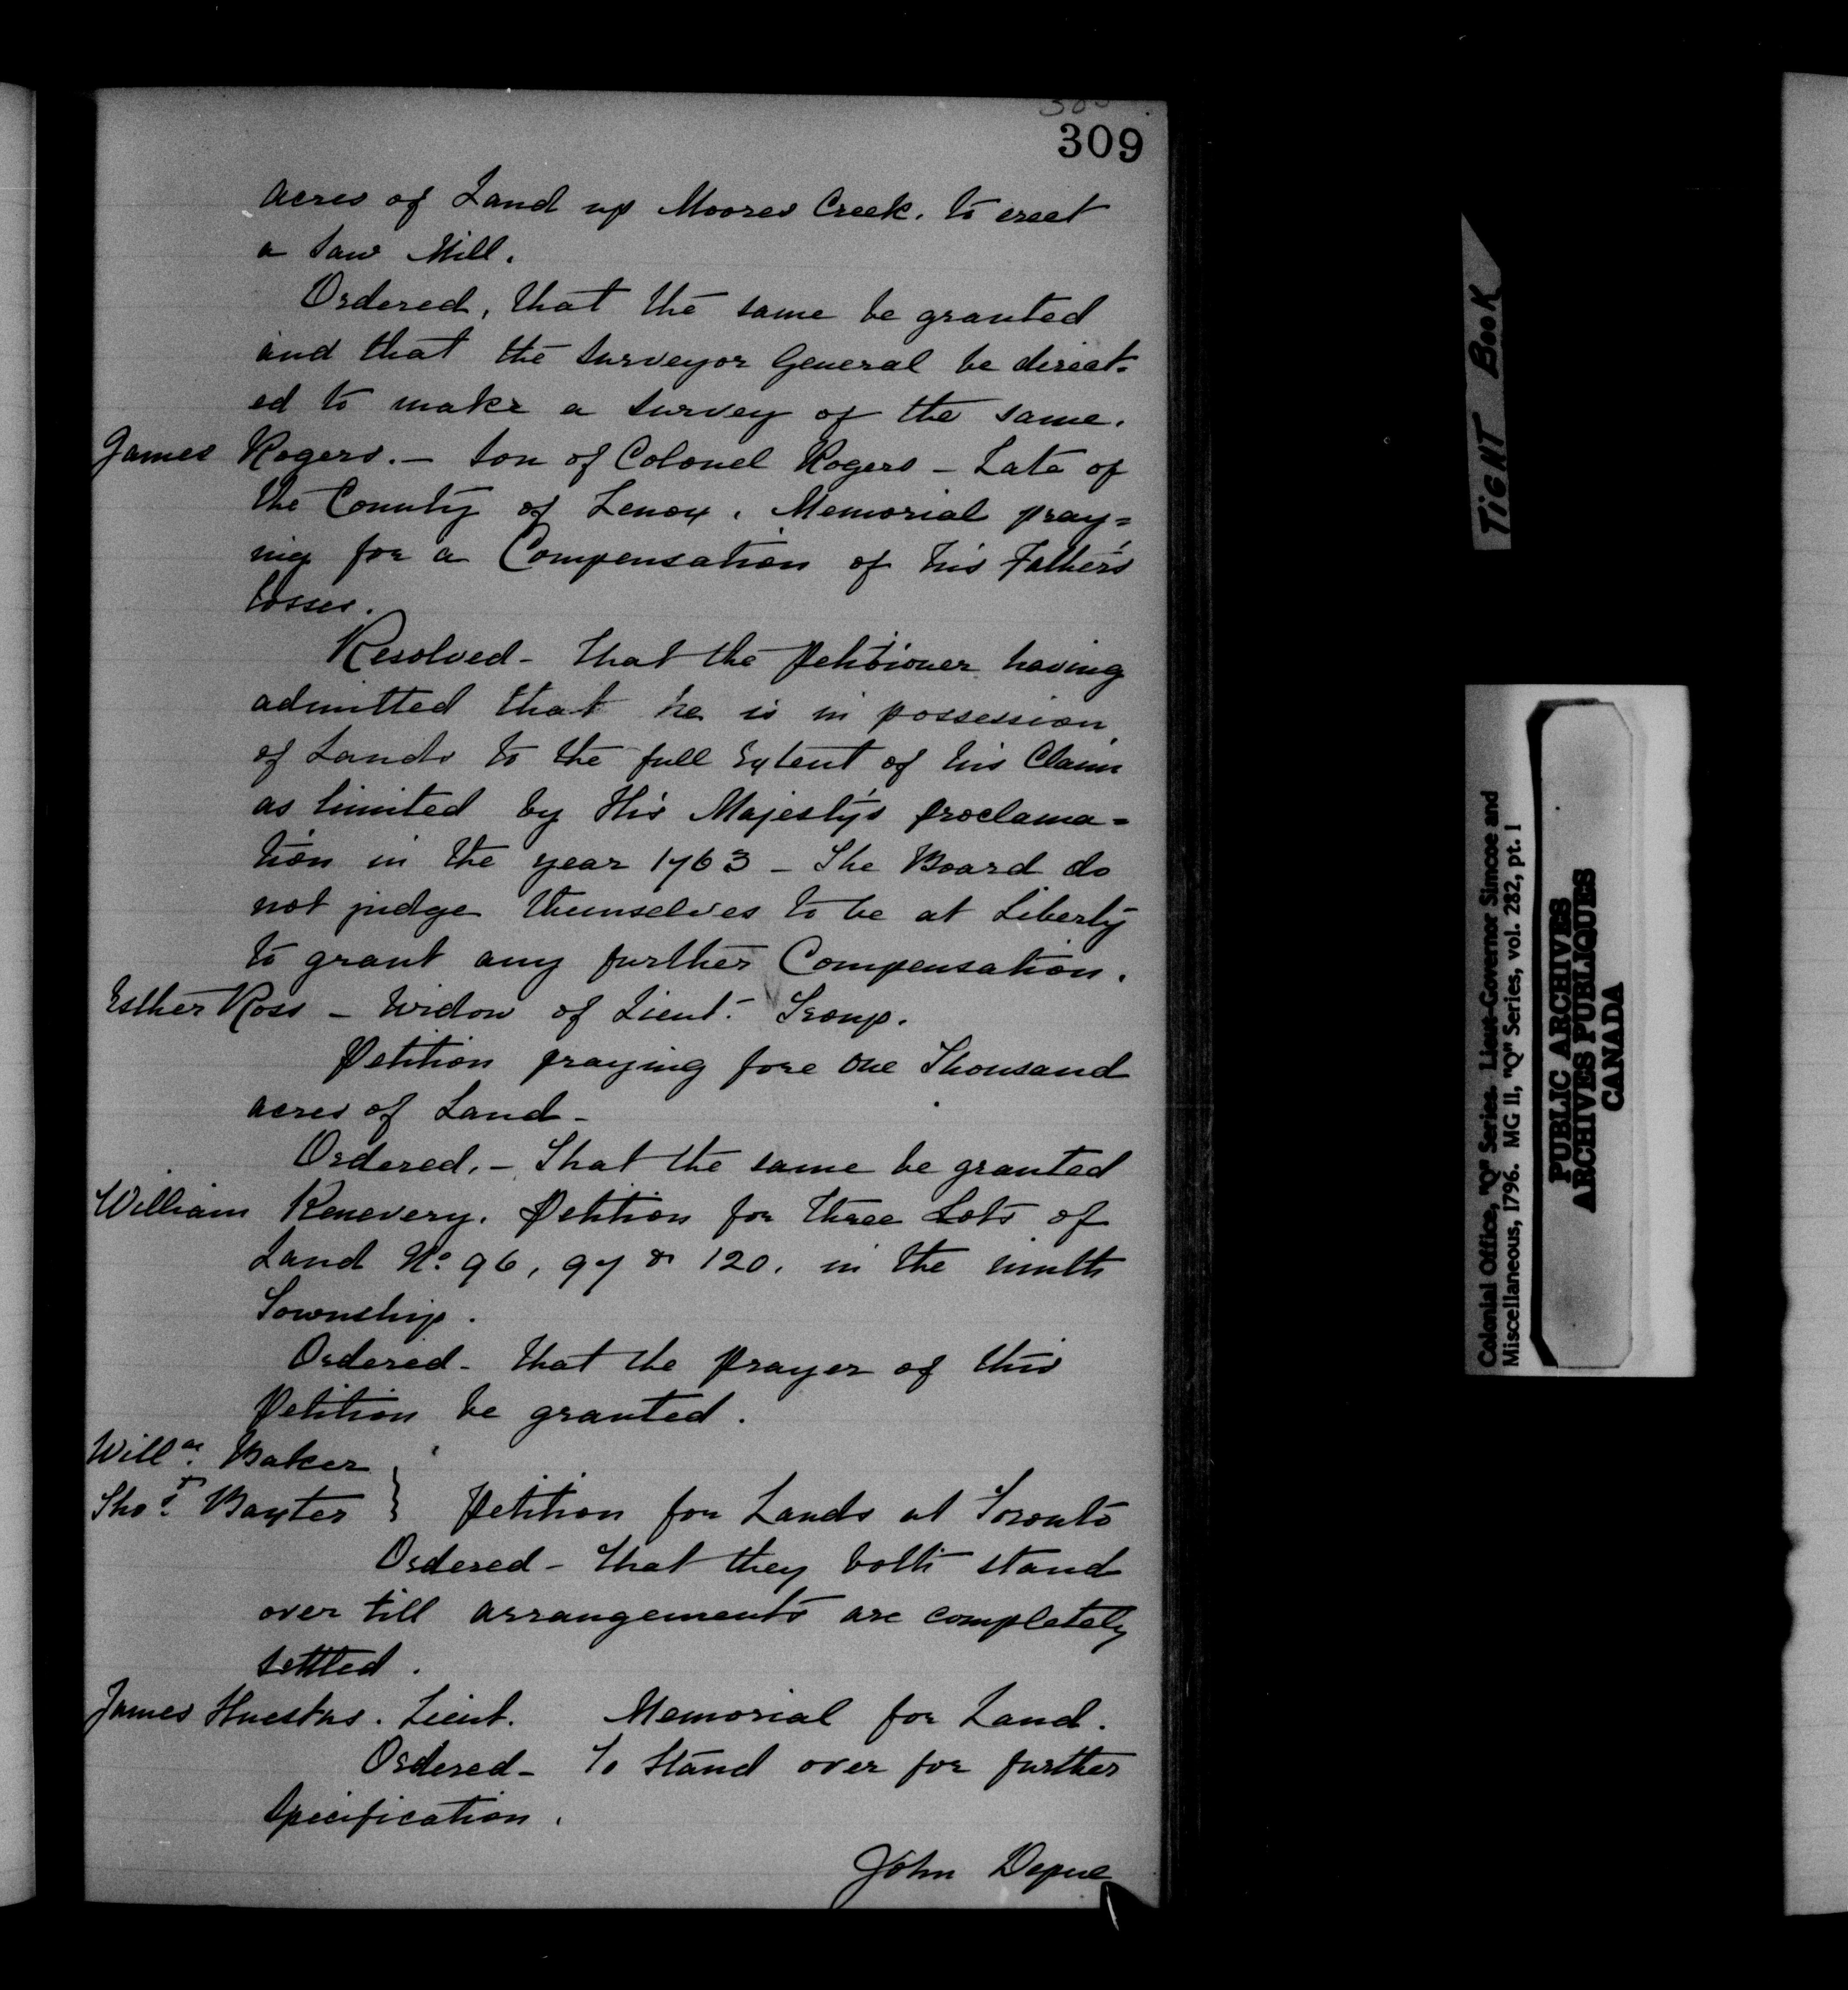 309
acres of Land up Moores Creek. to erect
a Saw Mill.
Ordered, that the same be granted
and that the Surveyor General be direct-
ed to make a survey of the same.
James Rogers. — Son of Colonel Rogers — Late of
the County of Lenox. Memorial pray=
ing for a Compensation of his Father's
losses.
Resolved - that the Petitioner having
admitted that he is in possession
of Lands to the full Extent of his Claim
as limited by His Majesty's proclama=
tion in the year 1763 - The Board do
not judge themselves to be at Liberty
to grant any further Compensation.
Esther Ross - Widow of Lieut. Group.
Petition praying fore one Thousand
acres of Land -
Ordered, - That the same be granted
William Kenevery. Petition for three Lots of
Land No. 96, 97 & 120. in the ninth
Township.
Ordered - that the prayer of this
Petition be granted.
Willm. Baker
Thos. Baxter } Petition for Lands at Toronto
Ordered - that they both stand
over till arrangements are completely
settled.
James Huestus. Lieut. Memorial for Land.
Ordered - To Stand over for further
Specification.
John Depue
TIGHT BOOK
Colonial Office, "Q" Series. Lieut-Governor Simcoe and
Miscellaneous, 1796. MG II, "Q" Series, vol. 282, pt. 1
PUBLIC ARCHIVES
ARCHIVES PUBLIQUES
CANADA